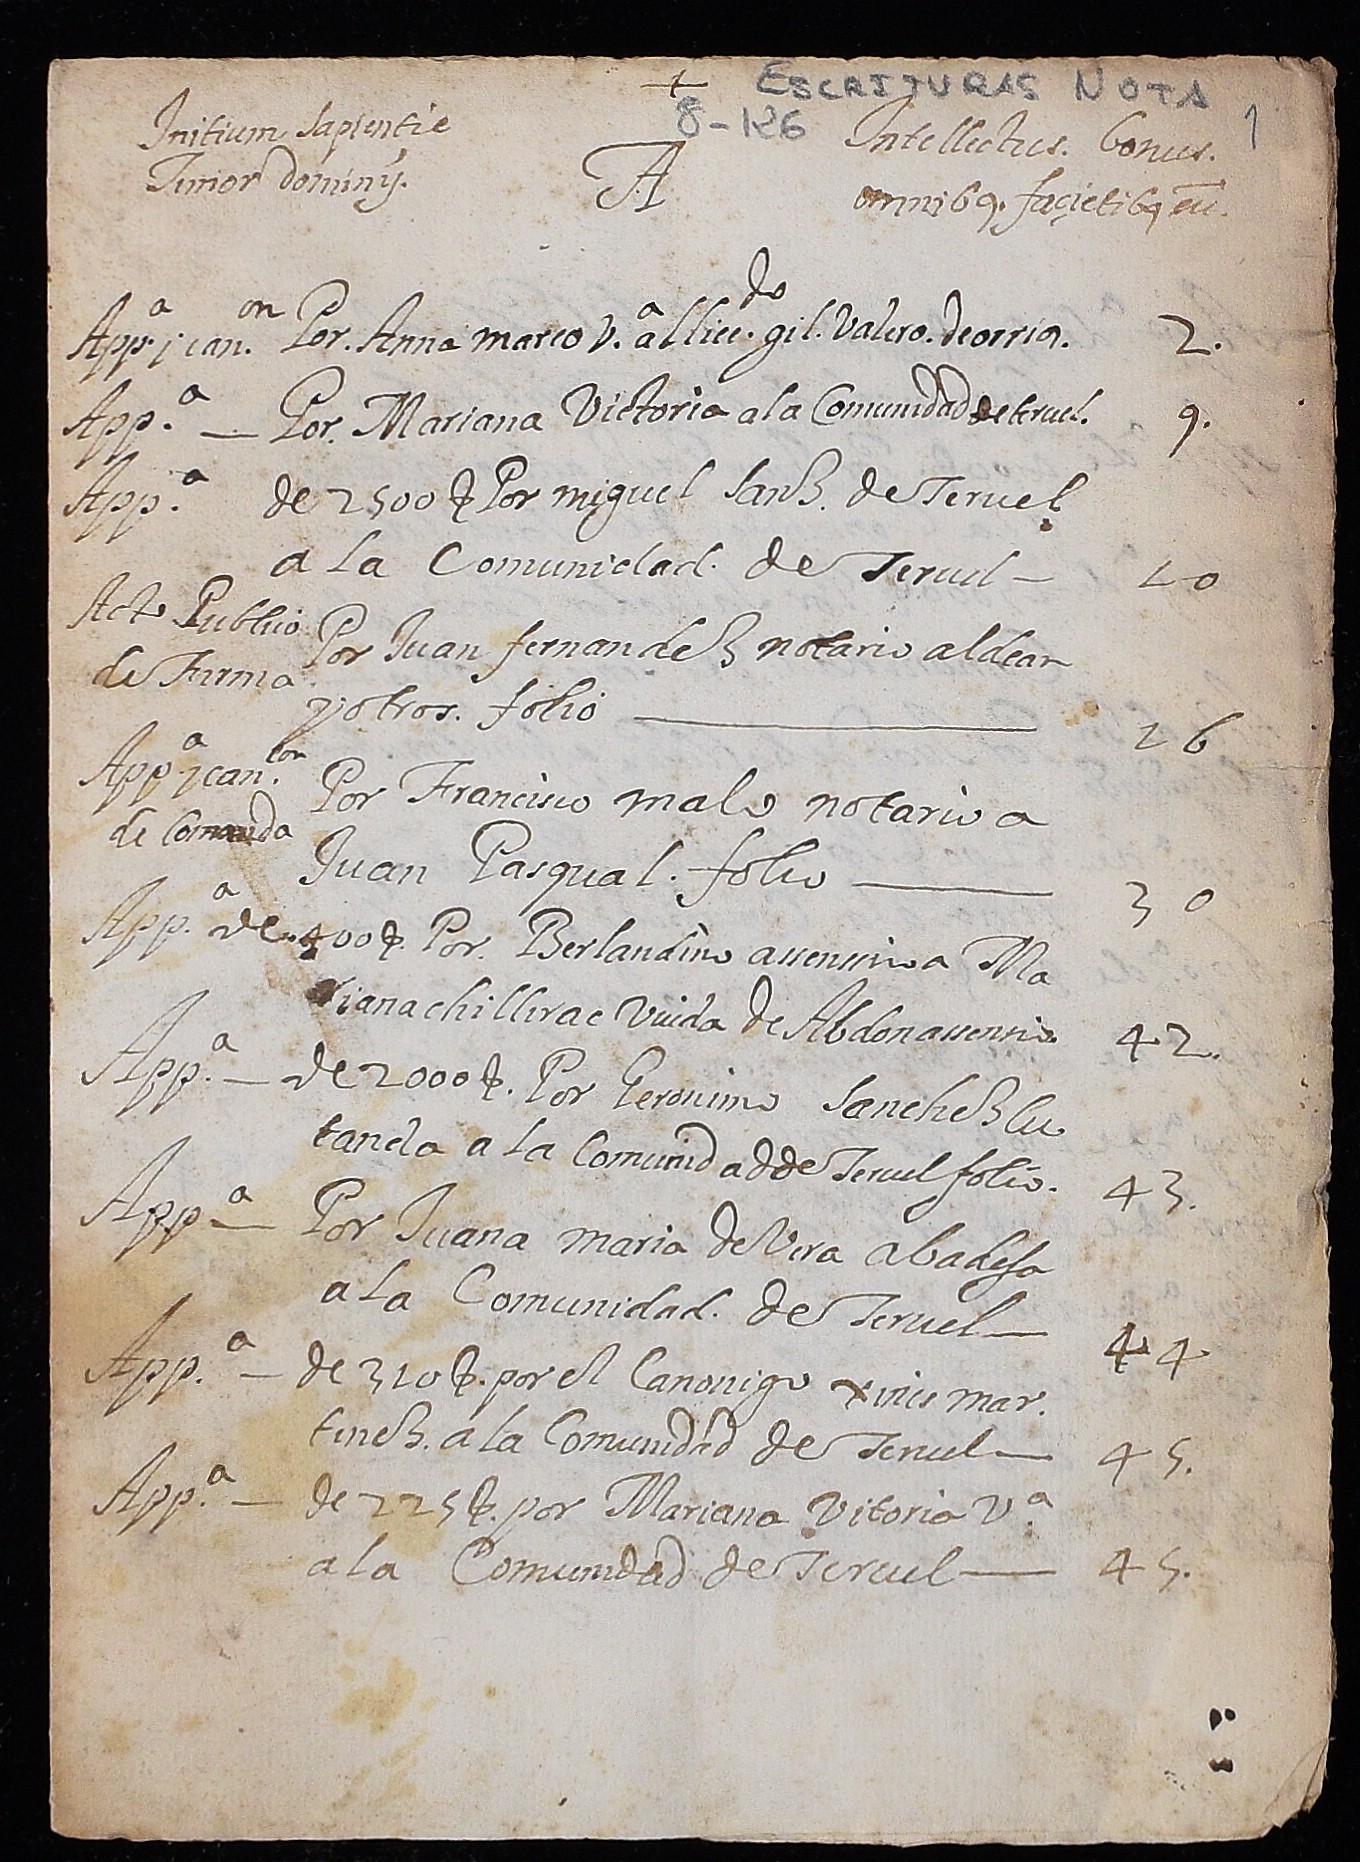 +
ESCRITURAS NOTA
8-126
1
Initium Sapientie
Timor dominÿ.
A
Intellectus. bonus.
omnibq. façietibq eū.
Appª. y can.on Por. Anna marco v.ª al licedo. gil. Valero. de orrios. 2.
App.ª — Por. Mariana Victoria a la Comunidad de teruel. 9.
App.ª de 2500 ₰ Por miguel Sanz. de Teruel
a la Comunidad. de Teruel — 20
Acto Publico Por Juan fernandez notario aldean
de Firma y otros. folio — 26
Appª y can.ion Por Francisco malo notario a
de Comanda Juan Pasqual. folio — 30
App.ª de 400 ₰. Por. Berlandino assensio a Ma
riana chillirae Viuida de Abdon assensio 42.
App.ª — de 2000 ₰. Por Geronimo Sanchez Cu
tanda a la Comunidad de Teruel folio. 43.
Appª — Por Juana maria de Vera abadesa
a la Comunidad. de Teruel — 44
App.ª — de 310 ₰. por el Canonigo xinis mar.
tinez. a la Comunidad de Teruel — 45.
App.ª — de 225 ₰. por Mariana Vitoria V.ª
a la Comunidad de Teruel — 45.